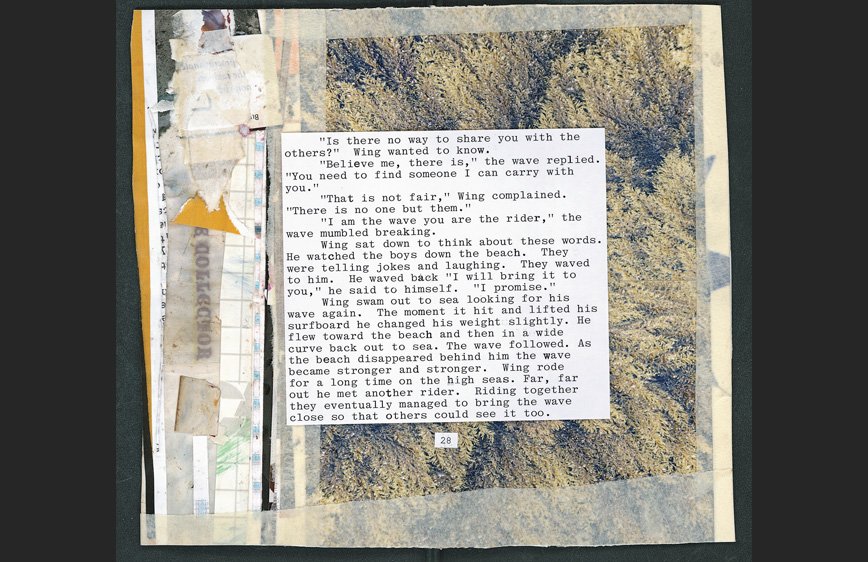 "Is there no way to share you with the
others?"  Wing wanted to know.
"Believe me, there is," the wave replied.
"You need to find someone I can carry with
you."
"That is not fair," Wing complained.
"There is no one but them."
"I am the wave you are the rider," the
wave mumbled breaking.
Wing sat down to think about these words.
He watched the boys down the beach.  They
were telling jokes and laughing.  They waved
to him.  He waved back "I will bring it to
you," he said to himself.  "I promise."
Wing swam out to sea looking for his
wave again.  The moment it hit and lifted his
surfboard he changed his weight slightly. He
flew toward the beach and then in a wide
curve back out to sea. The wave followed. As
the beach disappeared behind him the wave
became stronger and stronger.  Wing rode
for a long time on the high seas. Far, far
out he met another rider.  Riding together
they eventually managed to bring the wave
close so that others could see it too.
28